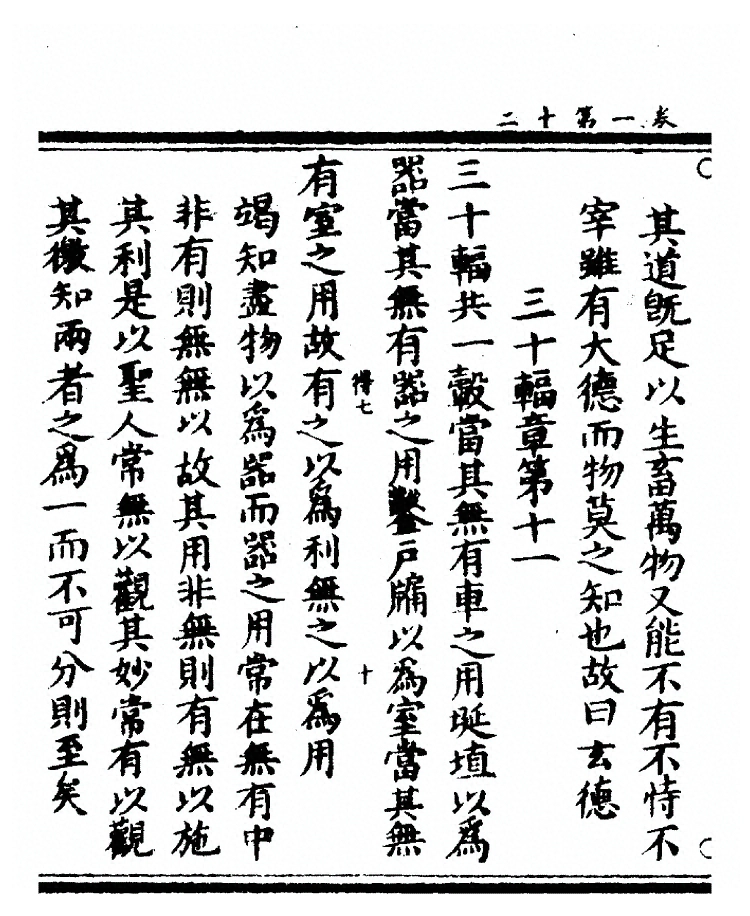 卷一第十二
其道旣足以生畜萬物又能不有不恃不
宰雖有大德而物莫之知也故曰玄德
三十輻章第十一
三十輻共一轂當其無有車之用埏埴以為
器當其無有器之用鑿戶牖以為室當其無
得七
十
有室之用故有之以為利無之以為用
竭知盡物以為器而器之用常在無有中
非有則無無以故其用非無則有無以施
其利是以聖人常無以觀其妙常有以觀
其徼知兩者之為一而不可分則至矣